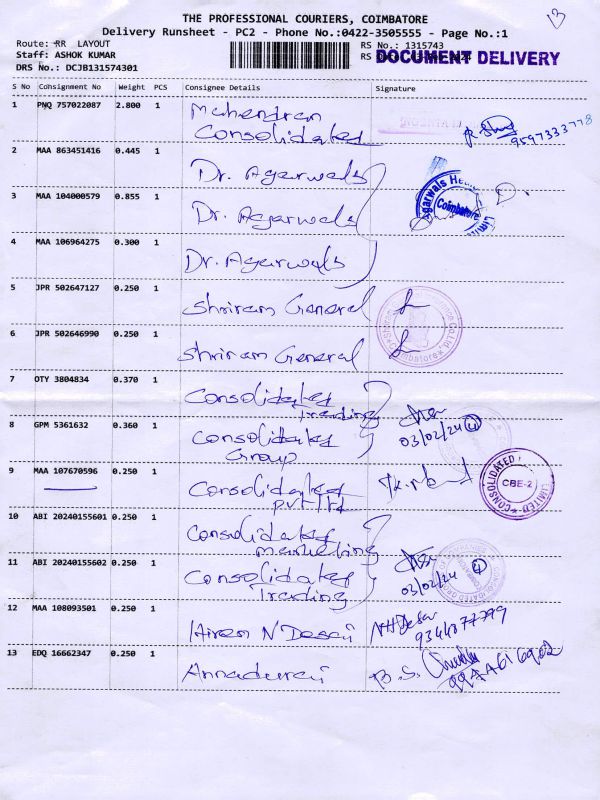 13
THE PROFESSIONAL COURIERS, COIMBATORE
Delivery Runsheet - PC2 - Phone No.:0422-3505555 - Page No.:1
Route: RR LAYOUT
Staff: ASHOK KUMAR
DRS No.: DCJB131574301
RS No.: 1315743
DOCUMENT DELIVERY
S No Cohsignment No Weight PCS Consignee Details Signature
1 PNQ 757022087 2.800 1 Mahendran
Consolidated
9597333778
2 MAA 863451416 0.445 1 Dr. Agarwals
3 MAA 104000579 0.855 1 Dr. Agarwals
Agarwals
Coimbatore
4 MAA 106964275 0.300 1 Dr. Agarwals
5 JPR 502647127 0.250 1 Shriram General
6 JPR 502646990 0.250 1 Shriram General
7 OTY 3804834 0.370 1 Consolidated
Trading
8 GPM 5361632 0.360 1 Consolidated
Group
03/02/24 4
9 MAA 107670596 0.250 1 Consolidated
Pvt ltd
CONSOLIDATED
CBE-2
LIMITED
10 ABI 20240155601 0.250 1 Consolidated
marketing
11 ABI 20240155602 0.250 1 Consolidated
Trading
03/02/24 4
12 MAA 108093501 0.250 1 Hiren N Desai
NHDesai
9344877799
13 EDQ 16662347 0.250 1 Annadurai
B.S.